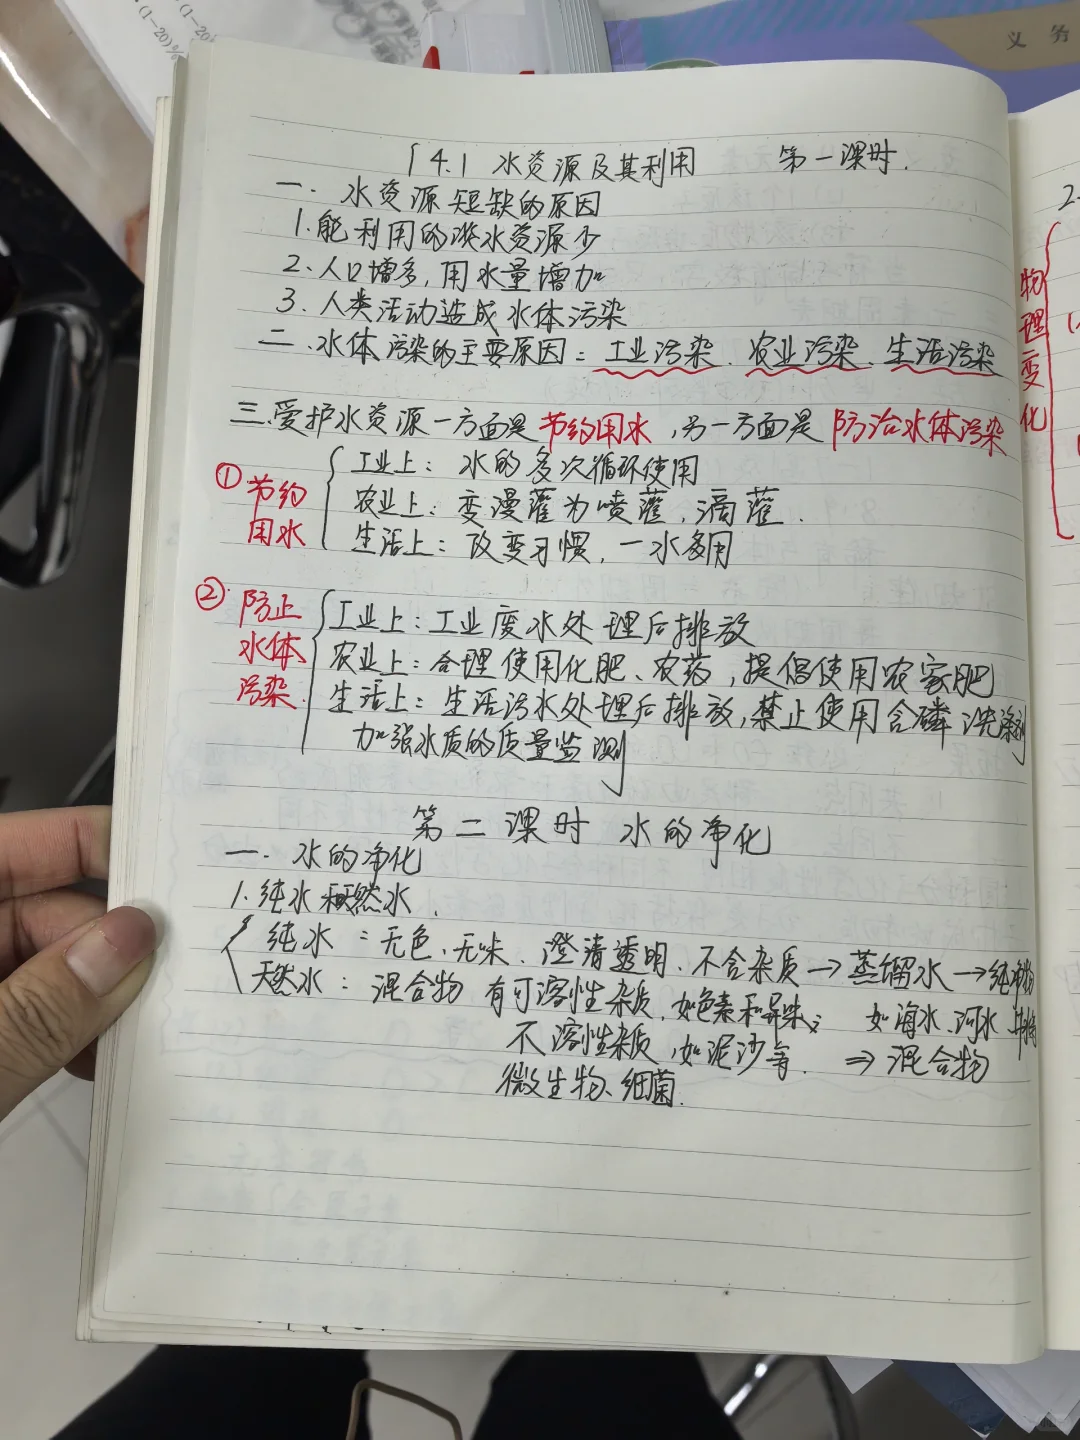 (1-20)%
(1-20)%
义 务
§4.1 水资源及其利用 第一课时.
一. 水资源短缺的原因
1.能利用的淡水资源少
2.人口增多,用水量增加
3.人类活动造成水体污染
二.水体污染的主要原因:工业污染、农业污染、生活污染
三.爱护水资源一方面是节约用水,另一方面是防治水体污染
①节约用水
工业上:水的多次循环使用
农业上:变漫灌为喷灌,滴灌.
生活上:改变习惯,一水多用
②.防止水体污染
工业上:工业废水处理后排放
农业上:合理使用化肥、农药,提倡使用农家肥
生活上:生活污水处理后排放,禁止使用含磷洗涤剂
加强水质的质量监测
第二课时 水的净化
一. 水的净化
1.纯水和天然水.
纯水:无色、无味、澄清透明、不含杂质→蒸馏水→纯净物
天然水:混合物 有可溶性杂质,如色素和异味; 如海水、河水
不溶性杂质,如泥沙等. ⇒混合物
微生物、细菌.
物理变化
2.